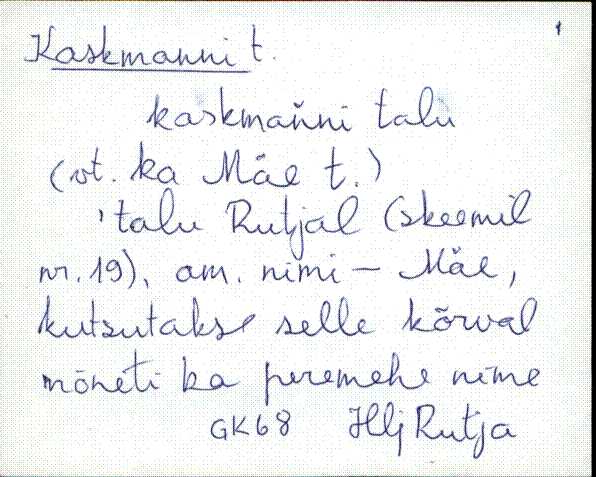 Kaskmanni t.
kaskmańni talu
(vt. ka Mäe t.)
'talu Rutjal (skeemil
nr. 19), am. nimi – Mäe,
kutsutakse selle kõrval
mõneti ka peremehe nime
GK68 Hlj Rutja